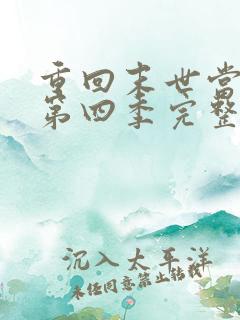 重回末世当
第四季完整
沉入太平洋
未经同意禁止转载